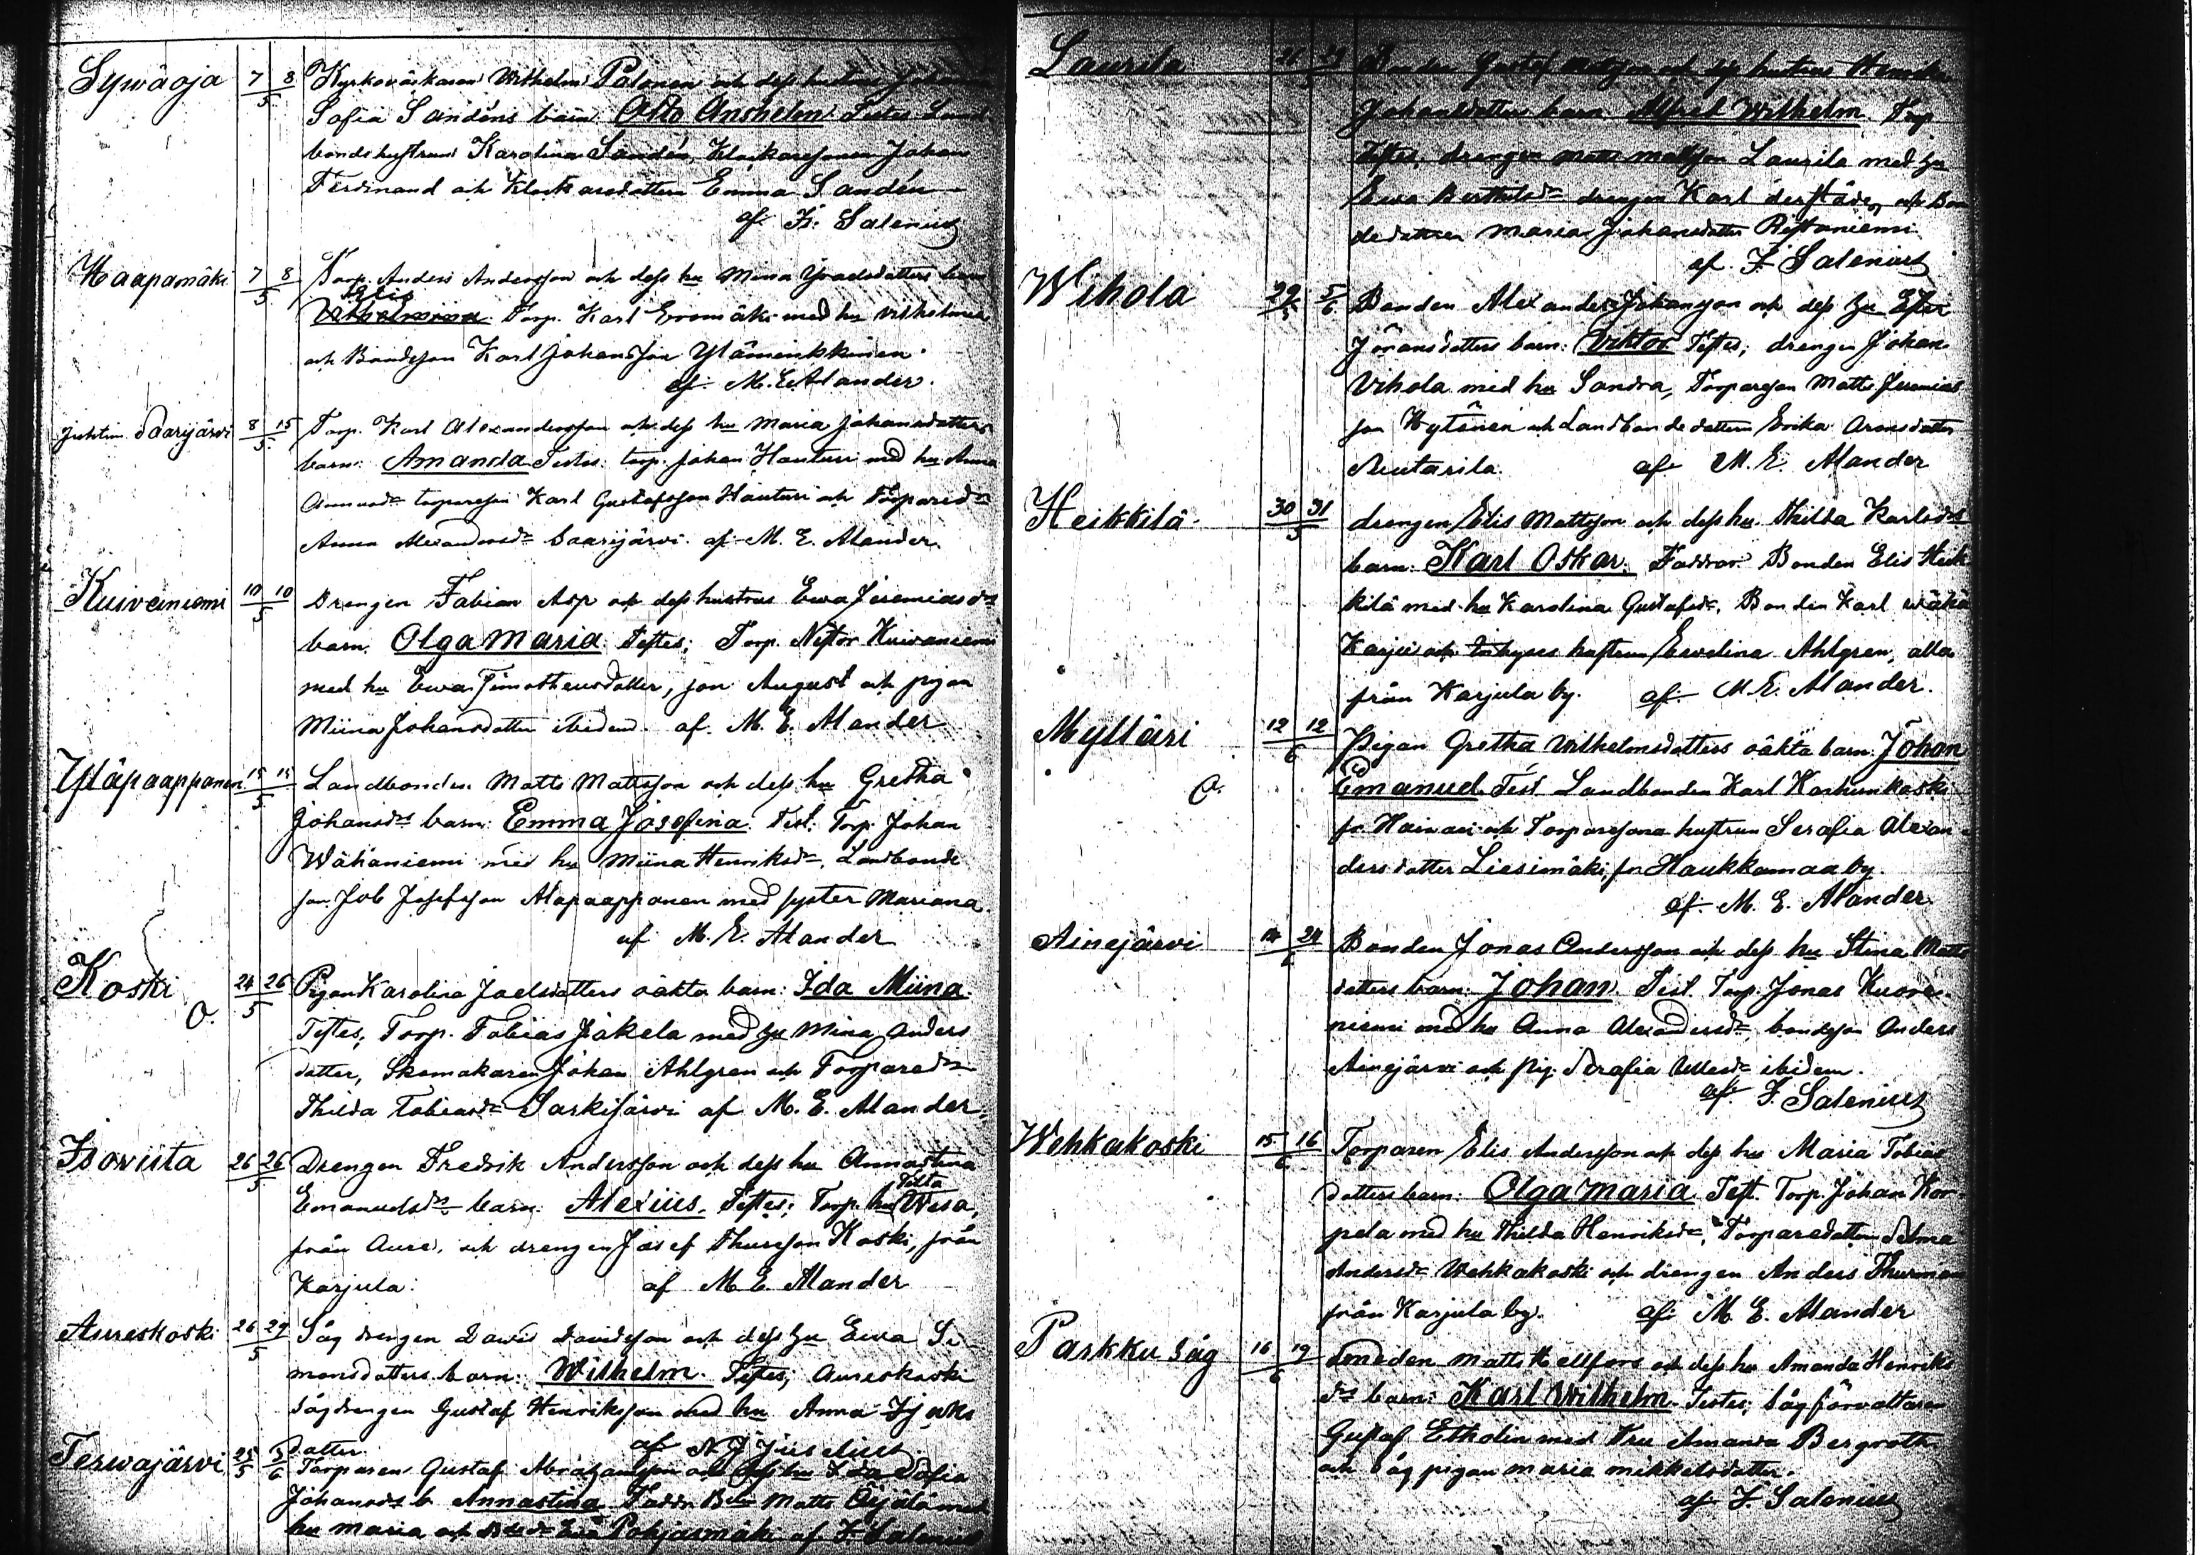 Sywäoja 7 8 Kyrkoväktaren Wilhelm Palonen och dess hustrus Johanna
5
Sofia Sandéns barn: Otto Anshelm Testes Land
bondshustrun Karolina Sandén, Klockaresonen Johan
Ferdinand och Klockaredottern Emma Sandén
af F. Salenius
Haapamäki 7 8 Torp. Anders Andersson och dess hu Mina barn
5
Wilhelmina Torp. Karl Eromäki med hu Wilhelmina
och Bondeson Karl Johansson Ylämenkkinen.
af M. E. Alander.
Saarijärvi 8 15 Torp. Karl Alexandersson och dess hu Maria Johansdotters
5
barn: Amanda Testes: torp. Johan Hauturi med hu Anna
torparesson Karl Gustafsson Hauturi och Torpared:r
Anna Alexandersd:r Saarijärvi af M. E. Alander.
Kuivainiemi 10 10 Drengen Fabian Asp och dess hustrus Ewa Jeremiasd:rs
5
barn. Olga Maria Testes; Torp. Nestor Kuivaniemi
med hu Ewa Timotheusdotter, son August och pigan
Miina Johansdotter ibidem. af M. E. Alander
Yläpaappanen 15 15 Landbonden Matts Mattsson och dess hu Gretha
5
Johansd:rs barn: Emma Josefina Test. Torp. Johan
Wähäniemi med hu Miina Henriksd:r, Landbonde
son Job Josefsson Alapaappanen med syster Mariana.
af M. E. Alander
Koski 24 26 Pigan Karolina Joelsdotters oäkta barn: Ida Miina.
O. 5
Testes; Torp. Tobias Jäkelä med hu Mina Anders
dotter, Skomakaren Johan Ahlgren och Torpared:r
Thilda Tobiasd:r Sarkijärvi af M. E. Alander.
Isoviita 26 26 Drengen Fredrik Andersson och dess hu Annastina
5
Emanuelsd:rs barn: Alexius. Testes; Torp. hu Wesa,
från Aure, och drengen Josef Thuresson Koski, från
Karjula. af M. E. Alander
Aureskoski 26 29 Såg drengen Dawid Davidsson och dess hu Ewa Si
5
monsdotters barn: Wilhelm. Testes; Aureskoski
sågdrengen Gustaf Henriksson med hu Anna Isaks
dotter. af N. J. Juselius
Terwajärvi 25 5 Torparen Gustaf Abrahamsson och dess hu Ida Sofia
5 6
Johansd:rs b. Annastina Fadd: Matts Öijälä med
hu Maria och Pohjasmäki af F. Salenius
Laurila 21 29 Bonden Gustaf Mattsson och dess hustrus
5
Johansdotters barn Alfred Wilhelm. Torp
Testes, drengen Matts Mattsson Laurila med hu
Ewa drengen Karl derstädes och Bon
dedottren Maria Johansdotter Ristaniemi
af F. Salenius
Wihola 29 5 Bonden Alexander Johansson och dess hu Ester
5 6
Jöransdotters barn: Viktor Testes; drengen Johan
Vihola med hu Sandra, Torpareson Matts Jeremias
son Kytönen och Landbondedottern Erika
af M. E. Alander
Heikkilä 30 31 drengen Elis Mattsson och dess hu Thilda Karlsd:rs
5
barn: Karl Oskar. Faddrar Bonden Elis Heik
kilä med hu Karolina Gustafsd:r, Bonden Karl Wäkä
Karju och inhyses hustrun Ewelina Ahlgren, alla
från Karjula by. af M. E. Alander.
Mylläri 12 12 Pigan Gretha Wilhelmsdotters oäkta barn: Johan
O. 6
Emanuel Test. Landbonden Karl Karhunkoski
fr. Hainari och Torparesons hustrun Serafia Alexan
dersdotter Liesimäki, fr. Haukkamaa by.
af M. E. Alander.
Ainejärvi 14 24 Bonden Jonas Andersson och dess hu Stina Matts
6
dotters barn: Johan. Test. Torp. Jonas Kuore
niemi med hu Anna Alexandersd:r, bondeson Anders
Ainejärvi och Pig. Serafia Ulles:dr ibidem.
af F. Salenius
Wehkakoski 15 16 Torparen Elis Andersson och dess hu Maria Tobias
6
dotters barn: Olga Maria Test. Torp. Johan Kor
pela med hu Thilda Henriksd:r, Torparedottern Selma
Andersd:r Wehkakoski och drengen Anders Thurman
från Karjula by. af M. E. Alander
Parkku såg 16 19 Smeden Matts Hellfors och dess hu Amanda Henriks
6
d:rs barn: Karl Wilhelm. Testes; Sågförvaltaren
Gustaf Etholin med Fru Amanda Bergroth
och Sågpigan Maria Mikkelsdotter.
af F. Salenius